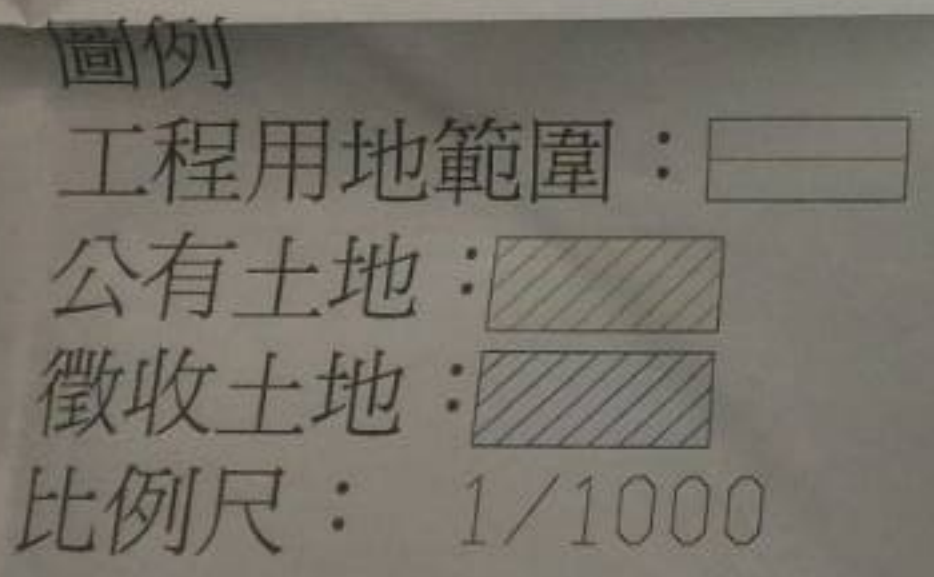 圖例
工程用地範圍：
公有土地：
徵收土地：
比例尺： 1/1000